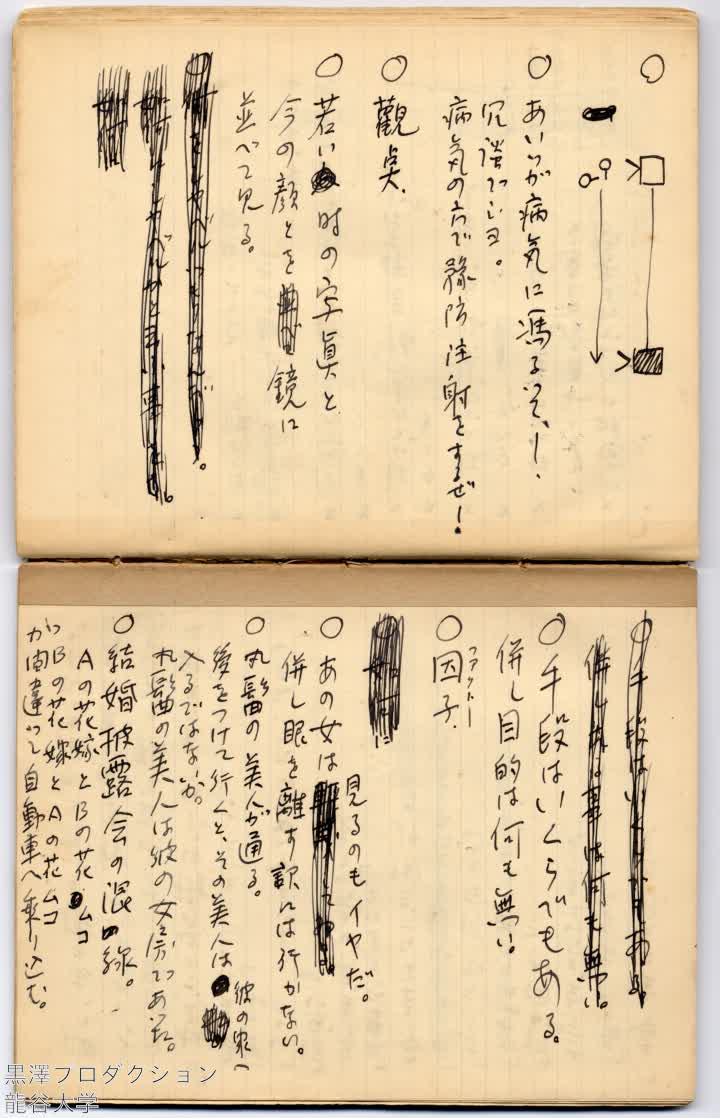 ○
○ あいつが病気に馮るいて、！
冗談でショ。
病気の方で豫防注射をするぜ！
○ 觀点。
○ 若い時の字眞と
今の顔とを鏡に
並べて見る。
○ 手段はいくらでもある。
併し目的は何も無い。
○ 手段はいくらでもある。
併し目的は何も無い。
○ 因子。
ファクトー
○ あの女は見るのもイヤだ。
併し眼を離す訳には行かない。
○ 丸髷の美人が通る。
後をつけて行くと、その美人は彼の家へ
入るではないか。
丸髷の美人は彼の女房であった。
○ 結婚披露会の混線。
Aの花嫁とBの花ムコ
Bの花嫁とAの花ムコ
が間違って自動車へ乗り込む。
黒澤プロダクション
龍谷大学